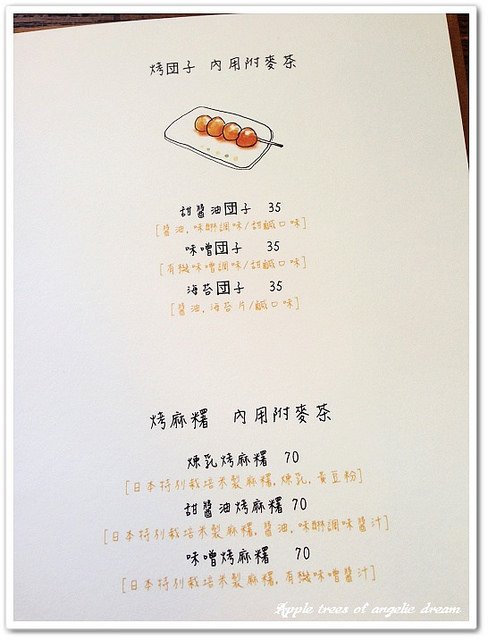 烤団子 內用附麥茶
甜醬油団子 35
[醬油,味醂調味/甜鹹口味]
味噌団子 35
[有機味噌調味/甜鹹口味]
海苔団子 35
[醬油,海苔片/鹹口味]
烤麻糬 內用附麥茶
煉乳烤麻糬 70
[日本特別栽培米製麻糬,煉乳,黃豆粉]
甜醬油烤麻糬 70
[日本特別栽培米製麻糬,醬油,味醂調味醬汁]
味噌烤麻糬 70
[日本特別栽培米製麻糬,有機味噌醬汁]
Apple trees of angelic dream